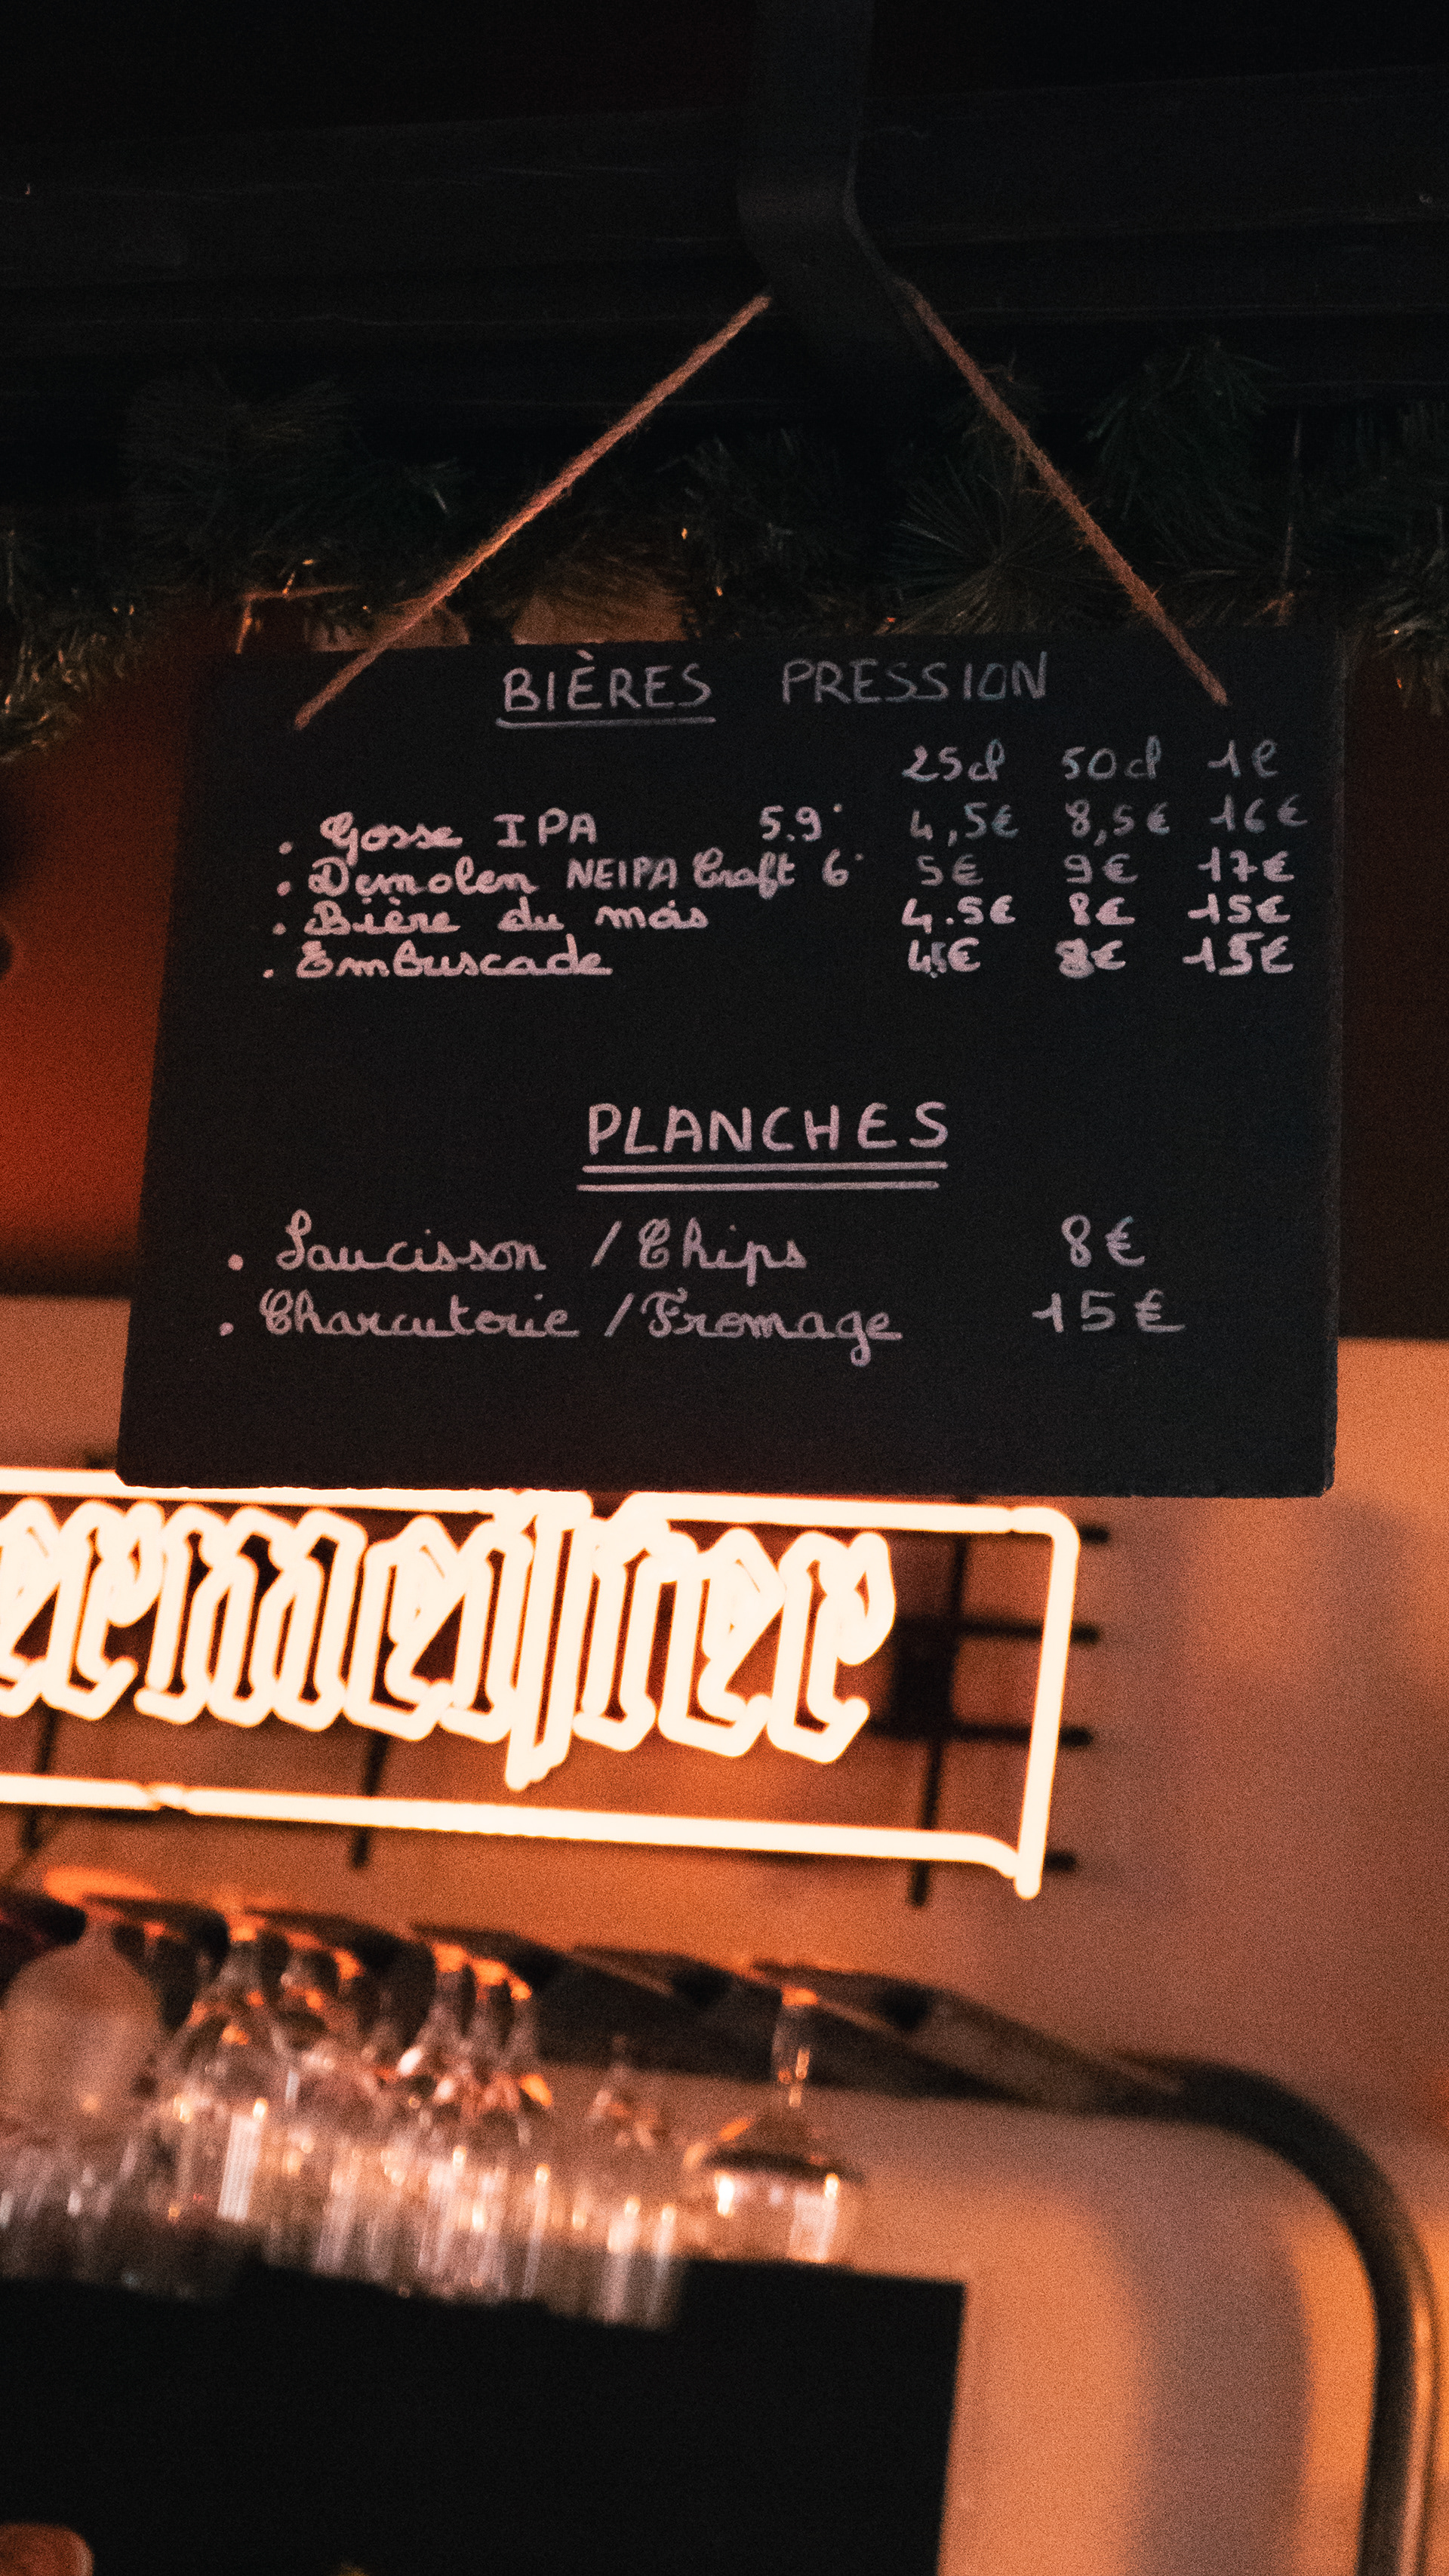 BIÈRES PRESSION
25cl 50cl 1l
. Gosse IPA 5.9° 4,5€ 8,5€ 16€
. Demolen NEIPA Craft 6° 5€ 9€ 17€
. Bière du mois 4.5€ 8€ 15€
. Embuscade 4,5€ 8€ 15€
PLANCHES
. Saucisson / Chips 8€
. Charcuterie / Fromage 15€